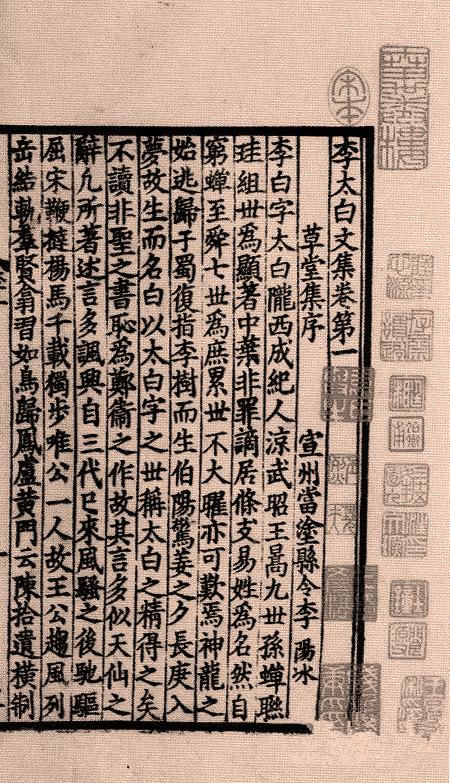 李太白文集卷第一
草堂集序
宣州當塗縣令李陽冰
李白字太白隴西成紀人涼武昭王暠九世孫蟬聯
珪組世為顯著中葉非罪謫居條支易姓為名然自
窮蟬至舜七世為庶累世不大曜亦可歎焉神龍之
始逃歸于蜀復指李樹而生伯陽驚姜之夕長庚入
夢故生而名白以太白字之世稱太白之精得之矣
不讀非聖之書恥為鄭衞之作故其言多似天仙之
辭凡所著述言多諷興自三代已來風騷之後馳驅
屈宋鞭撻楊馬千載獨步唯公一人故王公趨風列
岳結軌羣賢翕習如鳥歸鳳盧黃門云陳拾遺橫制